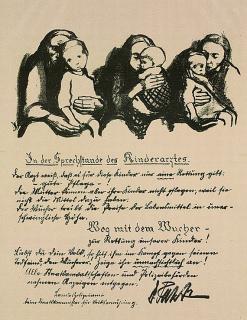 In der Sprechstunde des Kinderarztes.
Der Arzt weiß, daß es für diese Kinder nur eine Rettung gibt:
gute Pflege!
Die Mütter können aber ihre Kinder nicht pflegen, weil sie
nicht die Mittel dazu haben.
Der Wucher treibt die Preise der Lebensmittel in uner-
schwingliche Höhe.
Weg mit dem Wucher -
zur Rettung unserer Kinder!
Liebst du dein Volk, so hilf ihm im Kampf gegen seinen
Todfeind, den Wucherer. Zeige ihn unnachsichtlich an!
Alle Staatsanwaltschaften und Polizeibehörden
nehmen Anzeigen entgegen.